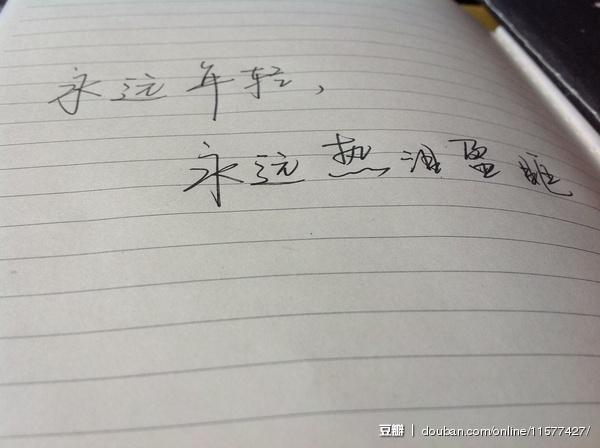 永远年轻，
永远热泪盈眶
豆瓣 | douban.com/online/11577427/